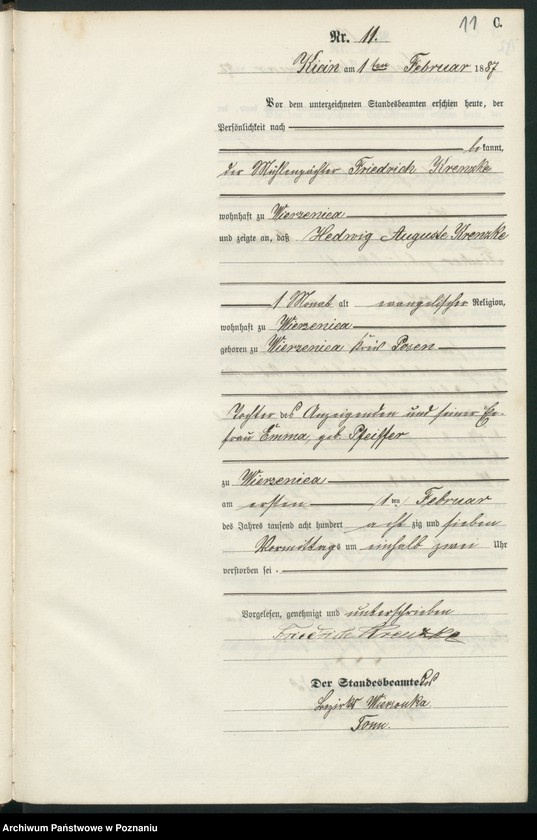 11 C.
Nr. 11.
Kicin am 1ten Februar 1887
Vor dem unterzeichneten Standesbeamten erschien heute, der
Persönlichkeit nach
bekannt,
der Mühlenpächter Friedrich Krenzke
wohnhaft zu Wierzenica
und zeigte an, daß Hedwig Auguste Krenzke
1 Monat alt evangelischer Religion,
wohnhaft zu Wierzenica
geboren zu Wierzenica Kreis Posen
Tochter des Anzeigenden und seiner Ehe-
frau Emma, geb. Pfeiffer
zu Wierzenica
am ersten 1ten Februar
des Jahres tausend acht hundert achtzig und sieben
Vormittags um einhalb zwei Uhr
verstorben sei.
Vorgelesen, genehmigt und unterschrieben
Friedrich Krenzke
Der Standesbeamte des
Bezirks Wierzonka
Archiwum Państwowe w Poznaniu